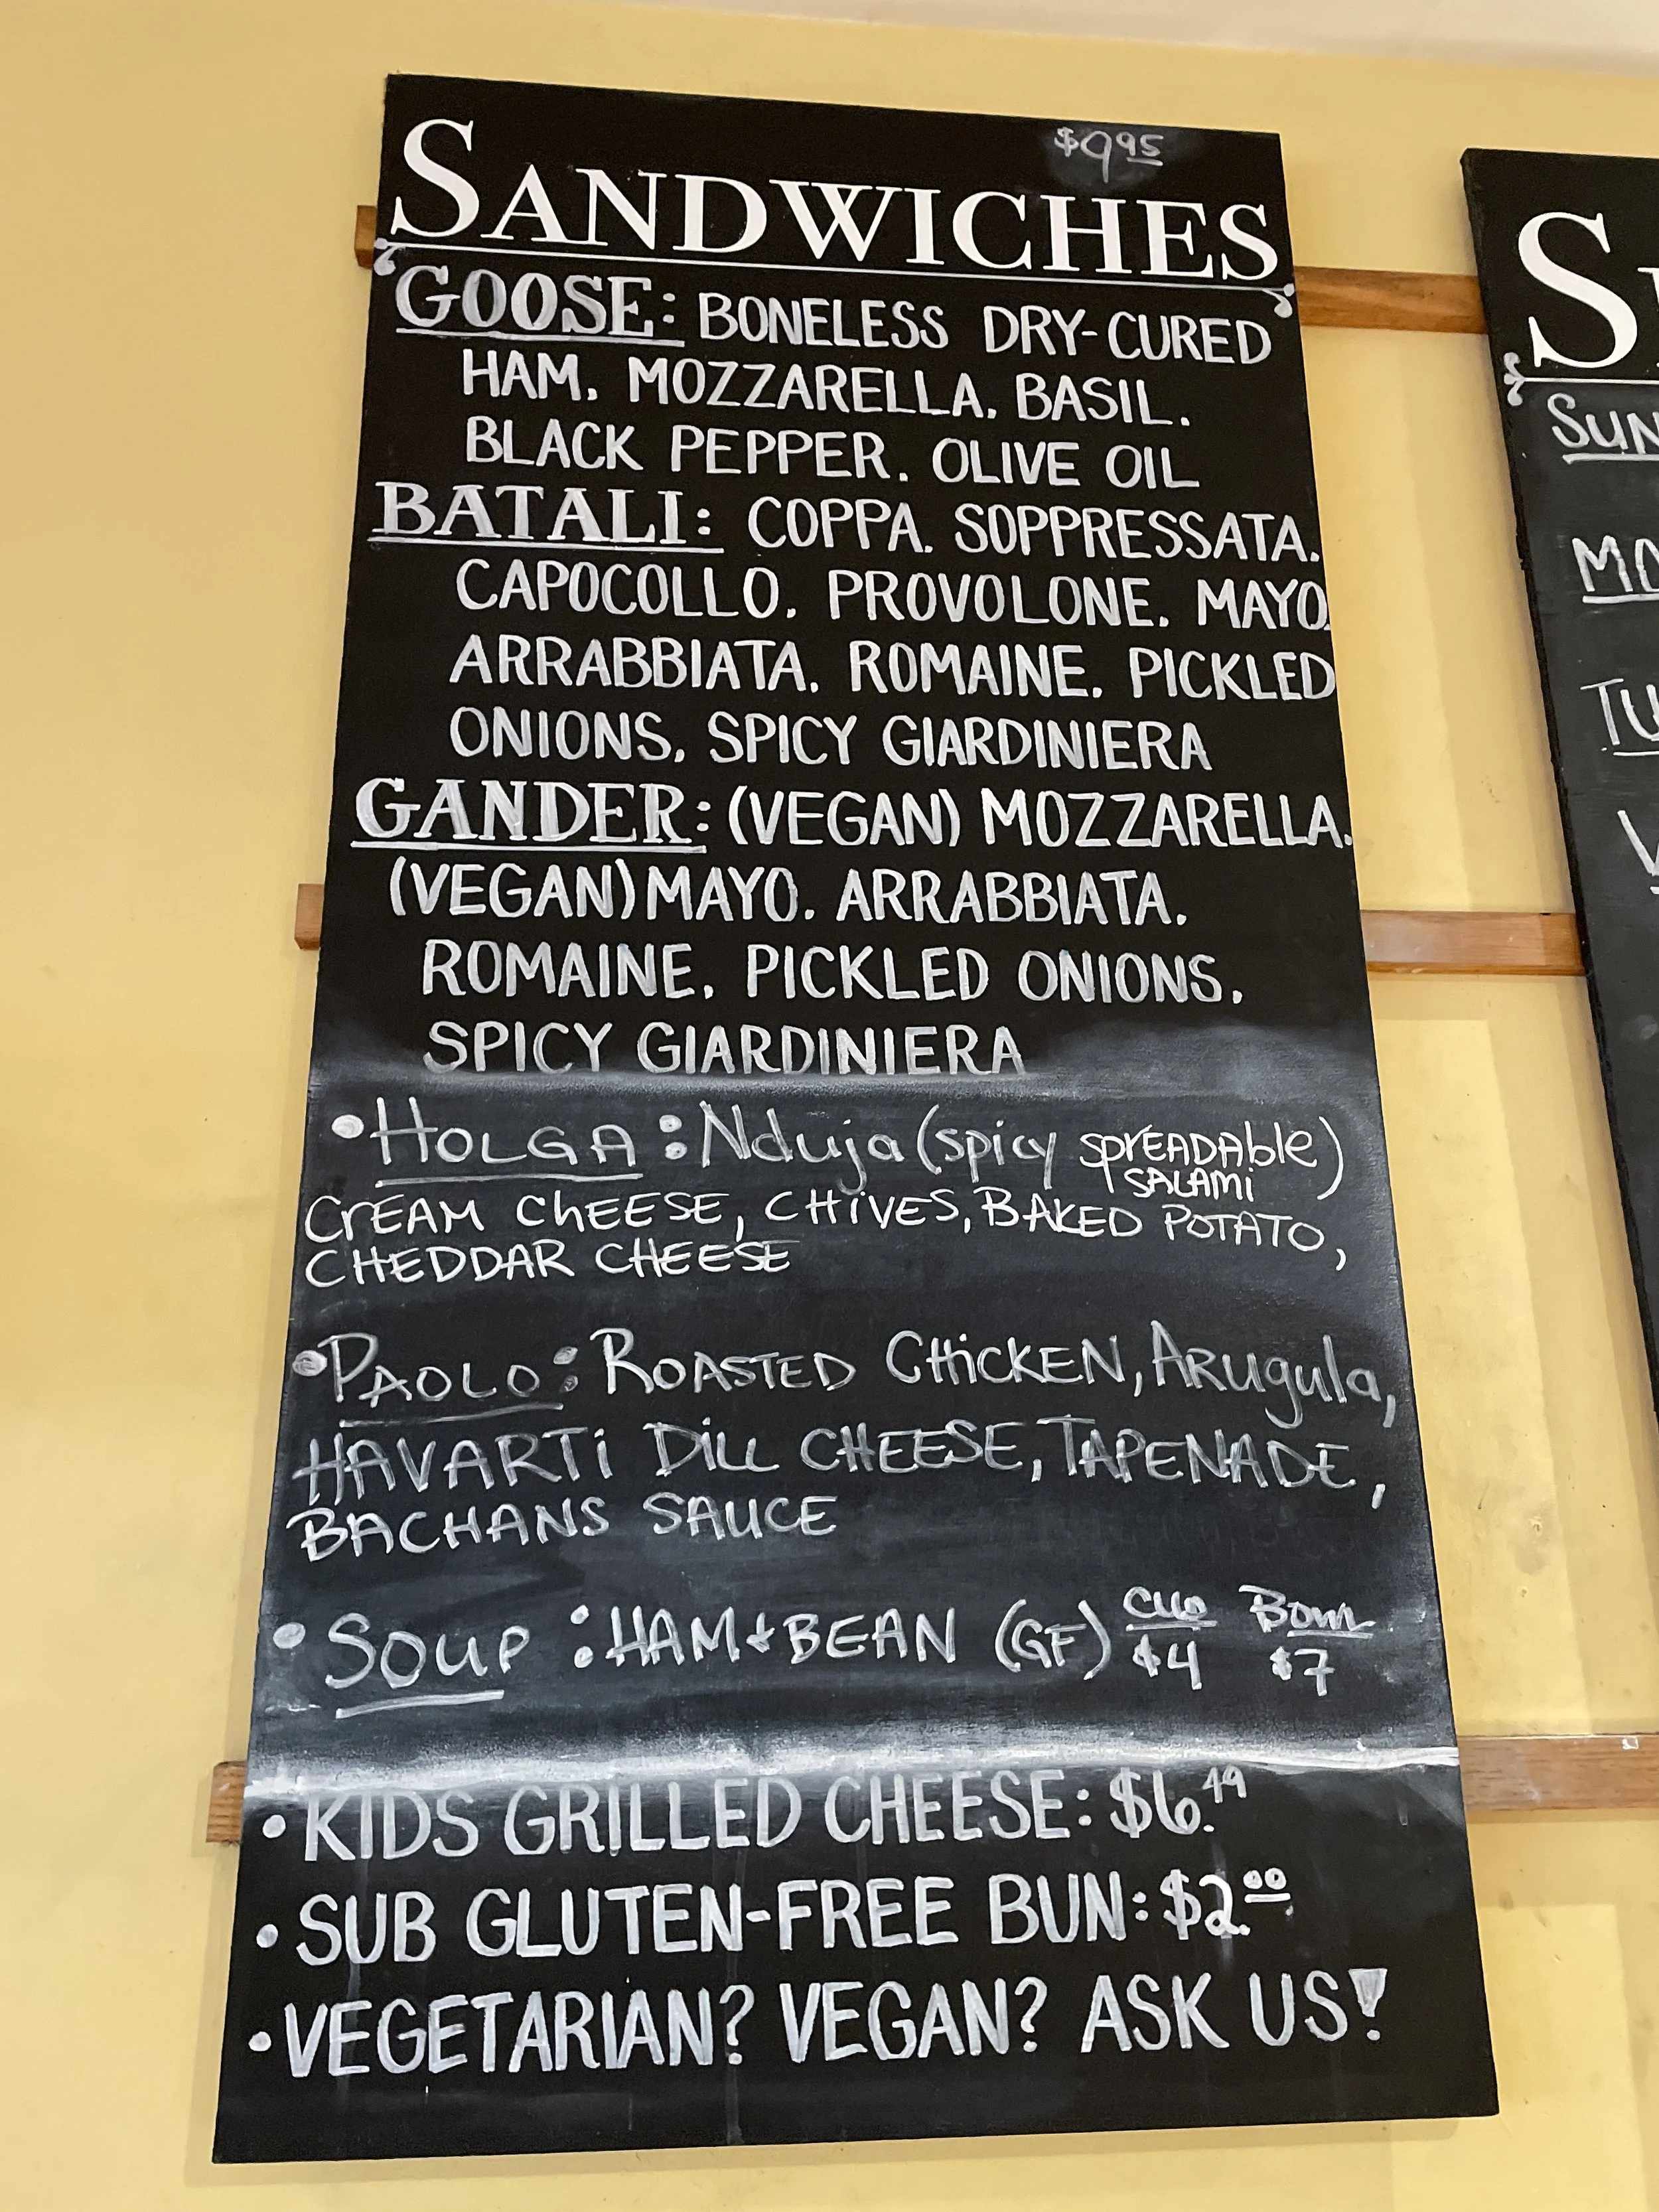 $9.95
SANDWICHES
GOOSE: BONELESS DRY-CURED
HAM. MOZZARELLA. BASIL.
BLACK PEPPER. OLIVE OIL
BATALI: COPPA. SOPPRESSATA.
CAPOCOLLO. PROVOLONE. MAYO.
ARRABBIATA. ROMAINE. PICKLED
ONIONS. SPICY GIARDINIERA
GANDER: (VEGAN) MOZZARELLA.
(VEGAN) MAYO. ARRABBIATA.
ROMAINE. PICKLED ONIONS.
SPICY GIARDINIERA
•HOLGA: Nduja (spicy spreadable)
SALAMi
CrEAM chEESE, CHiVES, BAKED POTATO,
CHEDDAR CHEESE
•PAOLO: ROASTED CHiCKEN, Arugula,
HAVARTi DiLL CHEESE, TAPENADE,
BACHANS SAUCE
•SOUP: HAM + BEAN (GF) CUP BOWL
$4 $7
•KIDS GRILLED CHEESE: $6.49
•SUB GLUTEN-FREE BUN: $2.00
•VEGETARIAN? VEGAN? ASK US!
SUN
MO
TU